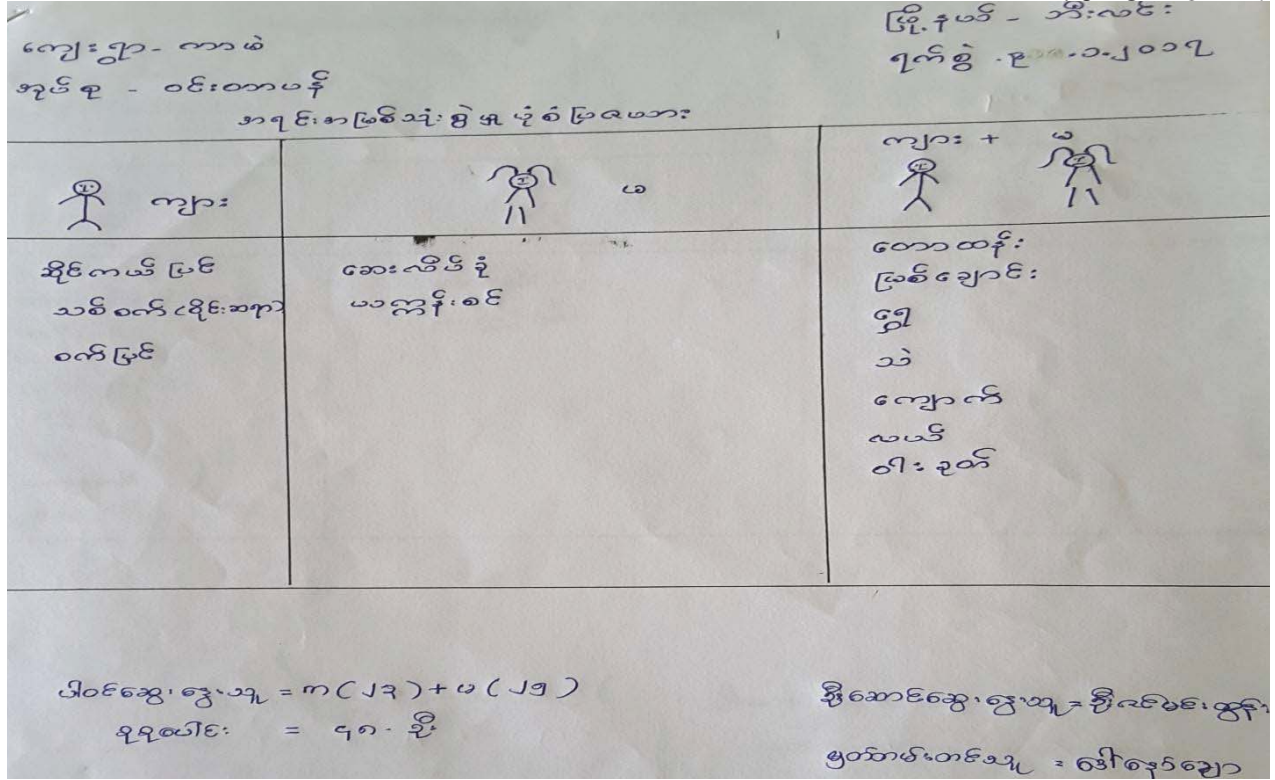 ကျေးရွာ - ကာမဲ
မြို့နယ် - ဘီးလင်း
အုပ်စု - ဝင်းတာပန်
ရက်စွဲ - ၉ .၁.၂၀၁၇
အရင်းအမြစ်သုံးစွဲမှုပုံစံပြဇယား
ကျား
မ
ကျား + မ
ဆိုင်ကယ်ပြင်
သစ်စက် (ဆရာ)
စက်ပြင်
ဆေးလိပ်ခုံ
ယက္ကန်းစင်
တောထန်း
မြစ်ချောင်း
ရွှေ
သဲ
ကျောက်
လယ်
ဝါးခုတ်
ပါဝင်ဆွေးနွေးသူ = က (၂၃) + မ (၂၅)
စုစုပေါင်း = ၄၈ - ဦး
ဦးဆောင်ဆွေးနွေးသူ = ဦးဇင်မင်းထွန်း
မှတ်တမ်းတင်သူ = ဒေါ်နော်ချော